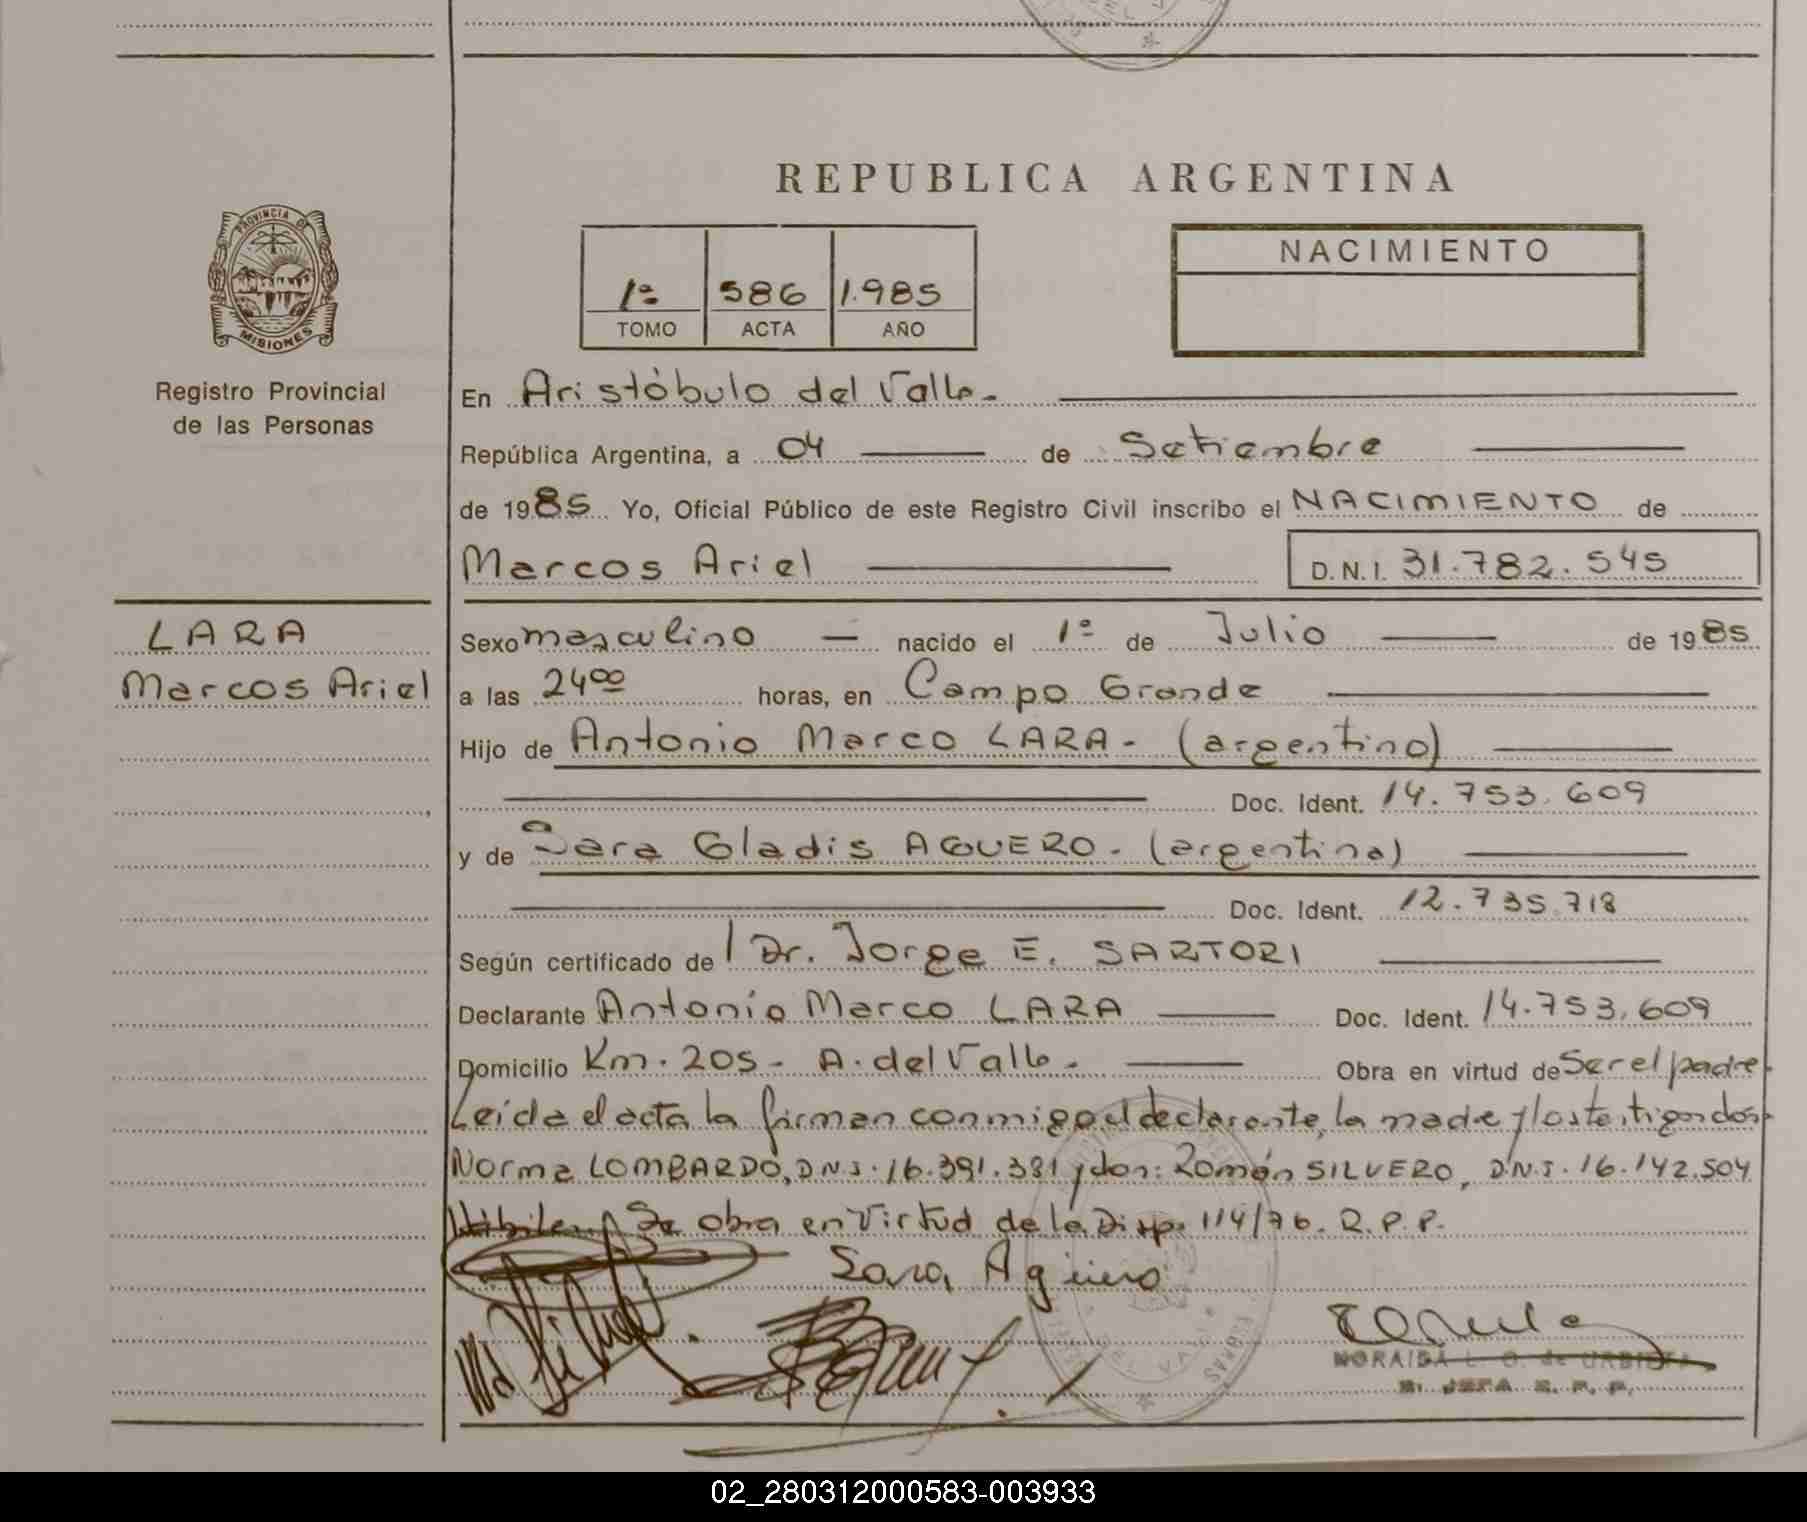 DEL V
REPUBLICA ARGENTINA
PROVINCIA DE
MISIONES
Registro Provincial
de las Personas
1º 586 1.985
TOMO ACTA AÑO
NACIMIENTO
En Aristóbulo del Valle.
República Argentina, a 04 de Setiembre
de 1985 Yo, Oficial Público de este Registro Civil inscribo el NACIMIENTO de
Marcos Ariel D.N.I. 31.782.545
LARA
Marcos Ariel
Sexo masculino nacido el 1º de Julio de 1985
a las 2400 horas, en Campo Grande
Hijo de Antonio Marco LARA - (argentino)
Doc. Ident. 14.753.609
y de Sara Gladis AGUERO - (argentina)
Doc. Ident. 12.735.718
Según certificado de Dr. Jorge E. SARTORI
Declarante Antonio Marco LARA Doc. Ident. 14.753.609
Domicilio Km. 205 - A. del Valle. Obra en virtud de Ser el padre.
Leída el acta la firman conmigo el declarante, la madre y los testigos dos:
Norma LOMBARDO, D.N.I. 16.391.381 y don: Román SILVERO, D.N.I. 16.142.504
Se obra en Virtud de la Disp. 114/76. R.P.P.
Sara Agüero
NORAIDA L. O. de URBIETA
JEFA R. P. P.
02_280312000583-003933